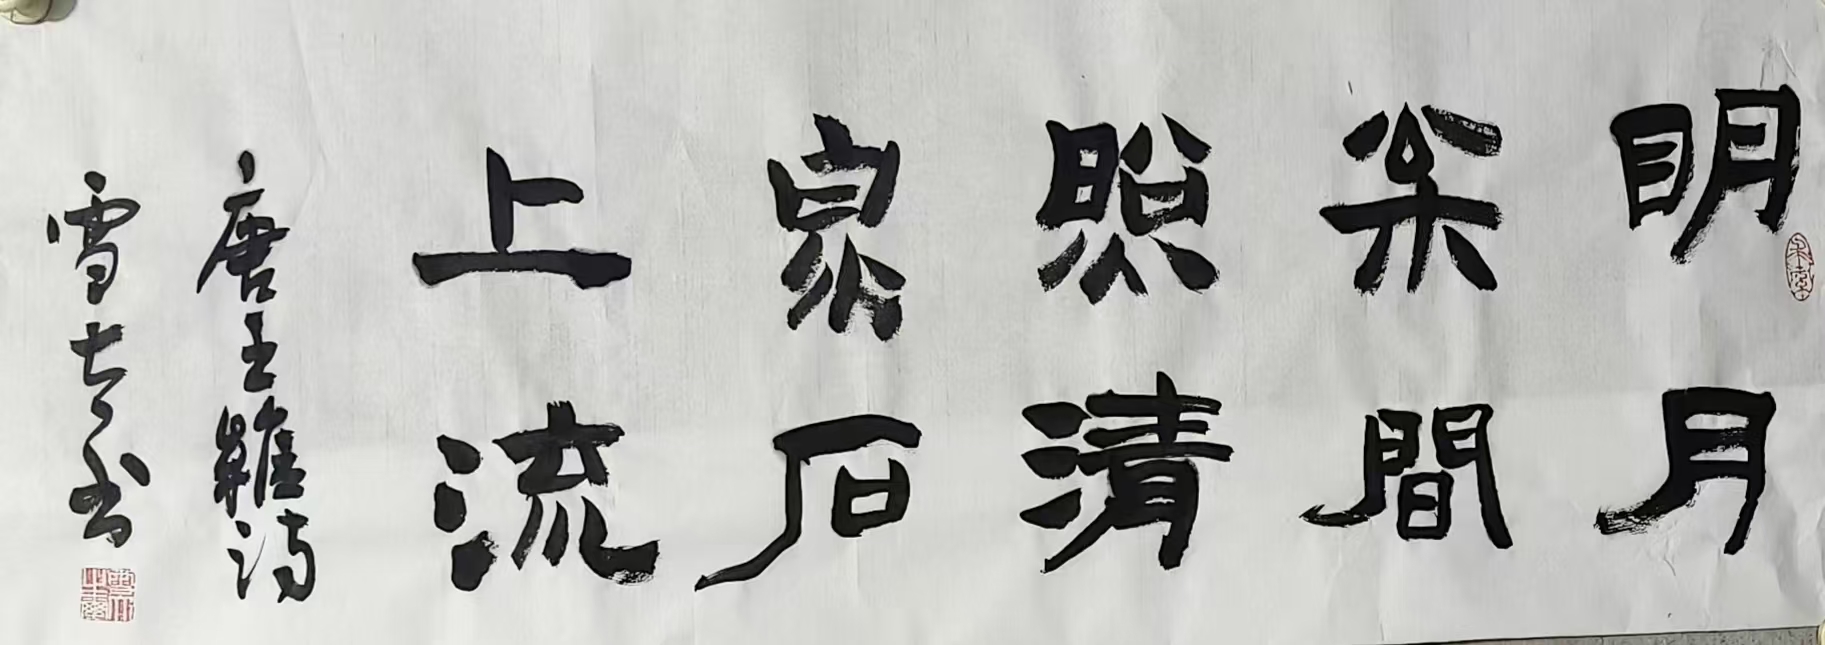 明月
松間
照清
泉石
上流
唐王維詩
雪书